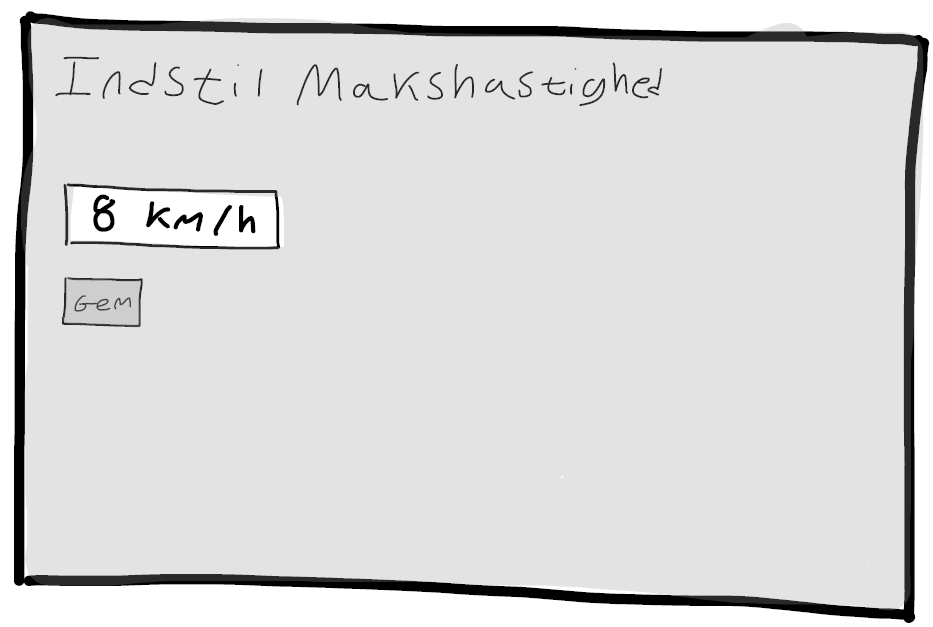 Indstil Makshastighed
8 km/h
Gem